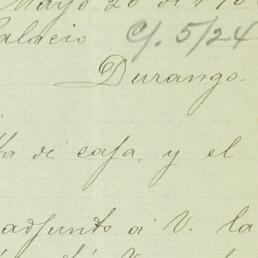 Mayo 20 de 190
Palacio C/. 5/24
Durango.
ta de casa, y el
adjunto á V. la